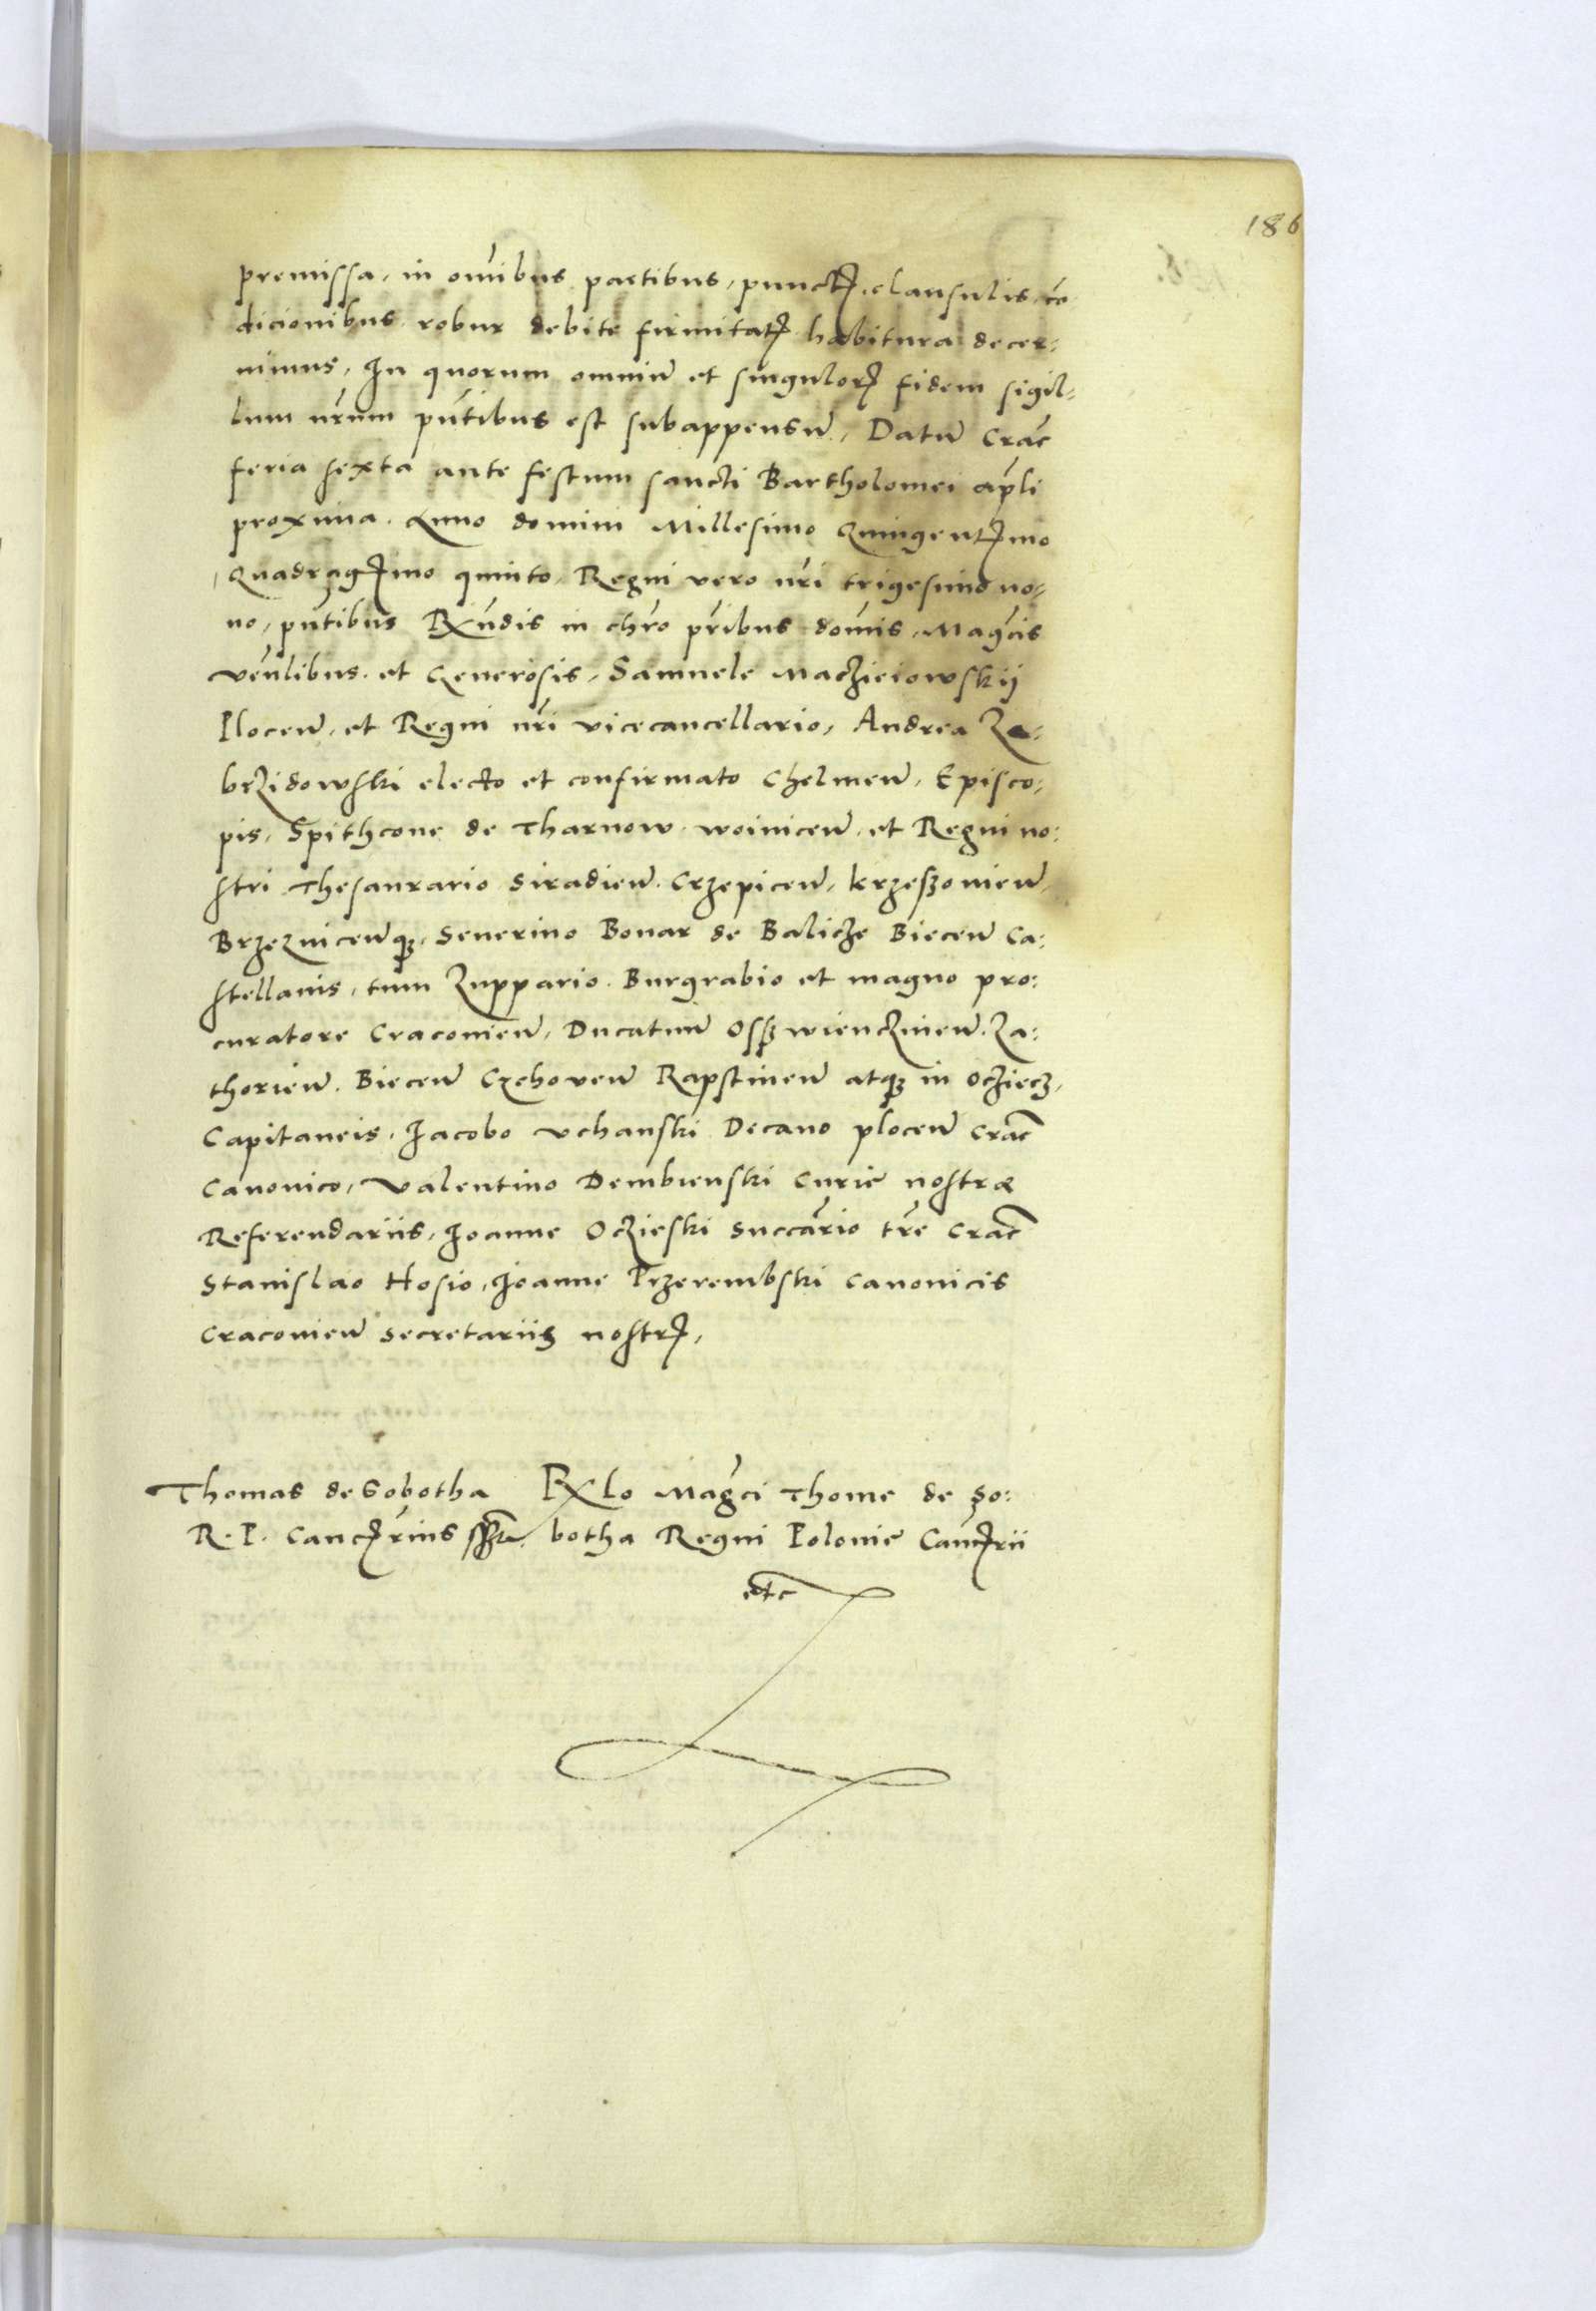 186
premissa, in om̄ibus partibus, punctꝭ, clausulis, cō
dicionibus robur debite firmitatꝭ habitura decer⸗
nimus, In quorum omniū et singulorꝭ fidem sigil⸗
lum nr̄um pn̄tibus est subappensū, Datū Crac̄
feria sexta ante festum sancti Bartholomei ap̄li
proxima. Anno domini Millesimo Quingentꝭmo
Quadragꝭmo quinto, Regni vero nr̄i trigesimo no⸗
no, pn̄tibus Rx̄ndis in chr̄o pr̄ibus dom̄is, Mag̃cis
ven̄libus. et Generosis, Samuele Maczieiowskij
Plocen̄, et Regni nr̄i vicecancellario, Andrea Ze⸗
brzidowski electo et confirmato Chelmen̄, Episco⸗
pis, Spithcone de Tharnow woinicen̄, et Regni no⸗
stri Thesaurario Siradien̄. Crzepicen̄, krzeszonien̄,
Brzeznicen̄qꝫ, Seuerino Bonar de Balicze Biecen̄ Ca⸗
stellanis, tum Zuppario. Burgrabio et magno pro⸗
curatore Cracouien̄, Ducatuū Osswienczimen̄. Za⸗
thorien̄. Biecen̄ Czchouen̄ Rapstinen̄ atqꝫ in Ocziecz,
Capitaneis, Iacobo Vchanski Decano plocen̄ Crac̄
Canonico, Valentino Dembienski Curie nostræ
Referendariis, Ioanne Oczieski Succãrio tr̄e Crac̄
Stanislao Hosio, Ioanne Przerembski Canonicis
Cracouien̄ Secretariis nostrꝭ,
Thomas de Sobotha
R. P. Cancꝭrius sszt.
Rx̄lo Mag̃ci Thome de So⸗
botha Regni Polonie Cancꝭrii
etc̄